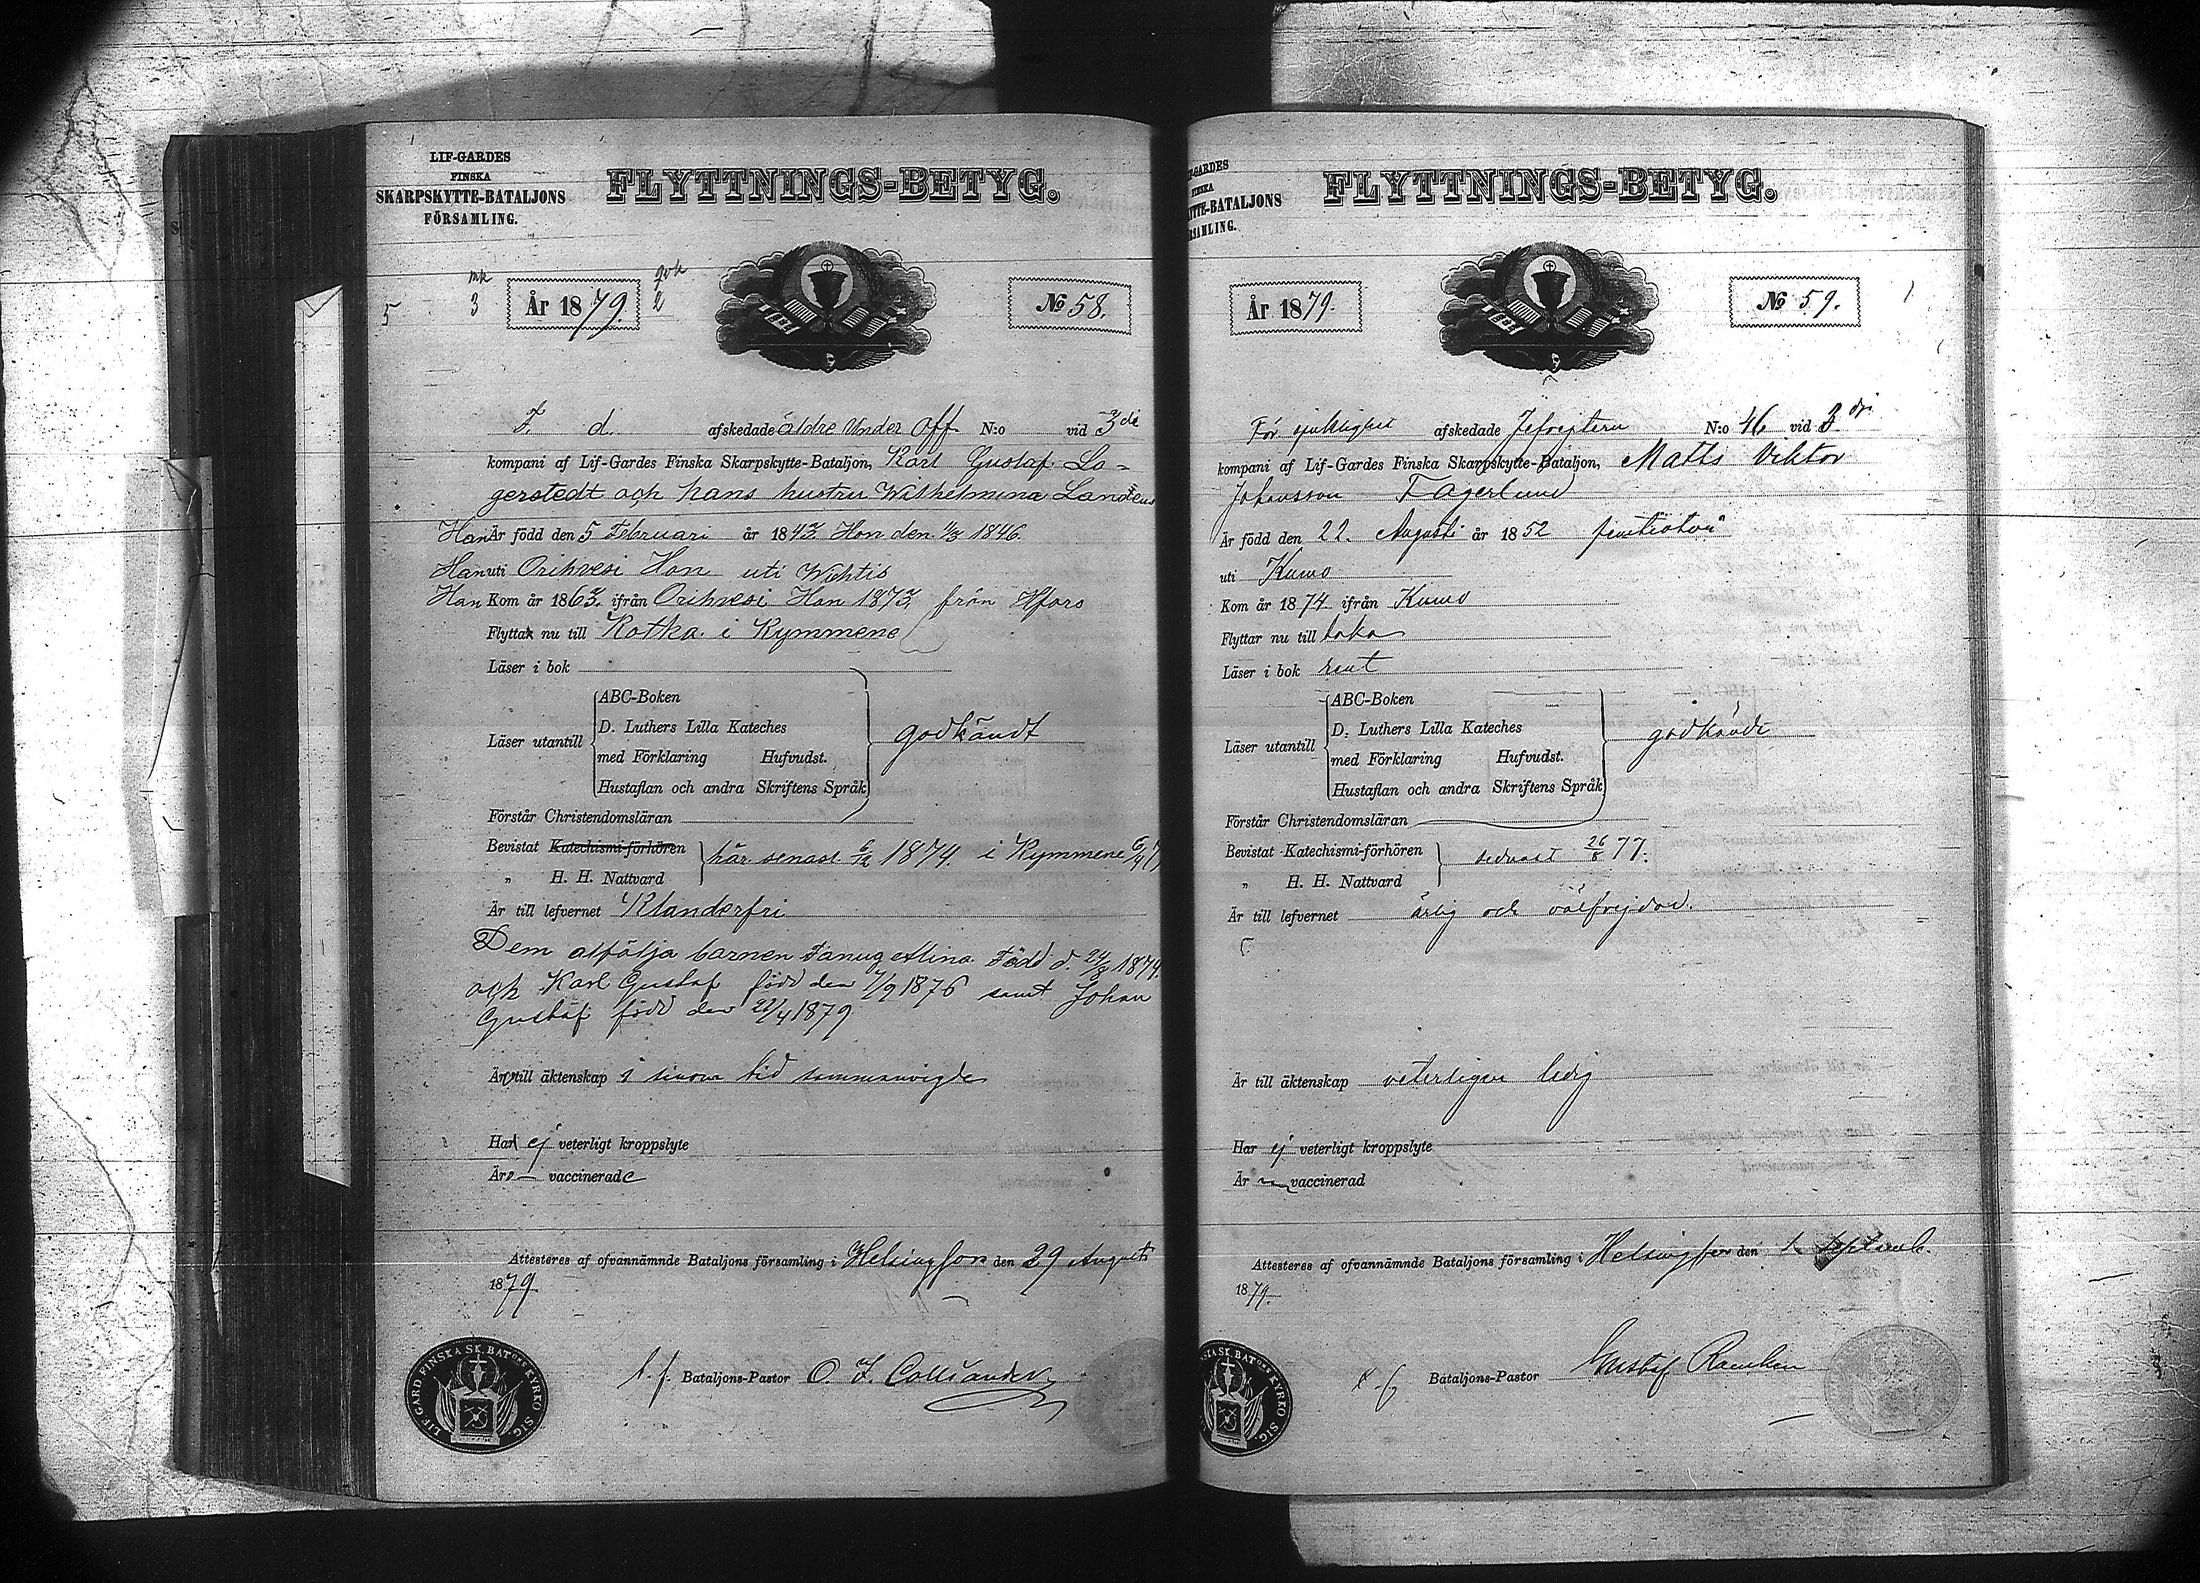 LIF-GARDES
FINSKA
SKARPSKYTTE-BATALJONS
FÖRSAMLING.
FLYTTNINGS-BETYG.
5
mk
3
År 1879.
2
No 58.
F. d. afskedade äldre Under Off. N:o vid 3de
kompani af Lif-Gardes Finska Skarpskytte-Bataljon, Karl Gustaf La-
gerstedt och hans hustru Wilhelmina
Han Är född den 5 Februari år 1843 Hon den 1846.
Han uti Orihvesi Hon uti Wichtis
Han Kom år 1863 ifrån Orihvesi Hon 1873 från Hfors
Flytta nu till Kotka i Kymmene
Läser i bok
Läser utantill
ABC-Boken
D. Luthers Lilla Kateches
med Förklaring Hufvudst.
Hustaflan och andra Skriftens Språk
godkändt
Förstår Christendomsläran
Bevistat Katechismi-förhören
" H. H. Nattvard
här senast 1874. i Kymmene
Är till lefvernet Klanderfri
Dem åtfölja barnen Född d. 1874.
och Karl Gustaf född den 7/9 1876 samt Johan
Gustaf född den /4 1879
Äro till äktenskap i sinom tid sammanvigde
Ha ej veterligt kroppslyte
Äro — vaccinerade
Attesteres af ofvannämnde Bataljons församling i Helsingfors den 29 Augusti
1879
t. f. Bataljons-Pastor O. F. Colliander
LIF. GARD FINSKA SK. BATONS KYRKO SIG.
-GARDES
FINSKA
TTE-BATALJONS
RSAMLING.
FLYTTNINGS-BETYG.
År 1879.
No 59.
För sjuklighet afskedade Jefrejtern N:o 46 vid 3dje
kompani af Lif-Gardes Finska Skarpskytte-Bataljon, Matts Viktor
Johansson Fagerlund
Är född den 22. Augusti år 1852 femtiotvå
uti Kumo
Kom år 1874 ifrån Kumo
Flyttar nu till
Läser i bok rent
Läser utantill
ABC-Boken
D. Luthers Lilla Kateches
med Förklaring Hufvudst.
Hustaflan och andra Skriftens Språk
godkändt
Förstår Christendomsläran
Bevistat Katechismi-förhören
" H. H. Nattvard
senast 26/8 77.
Är till lefvernet ärlig och välfrejdad.
Är till äktenskap veterligen ledig
Har ej veterligt kroppslyte
Är vaccinerad
Attesteres af ofvannämnde Bataljons församling i Helsingfors den 1 Septemb.
1879.
t. f. Bataljons-Pastor Gustaf
SKA SK. BATONS KYRKO SIG.